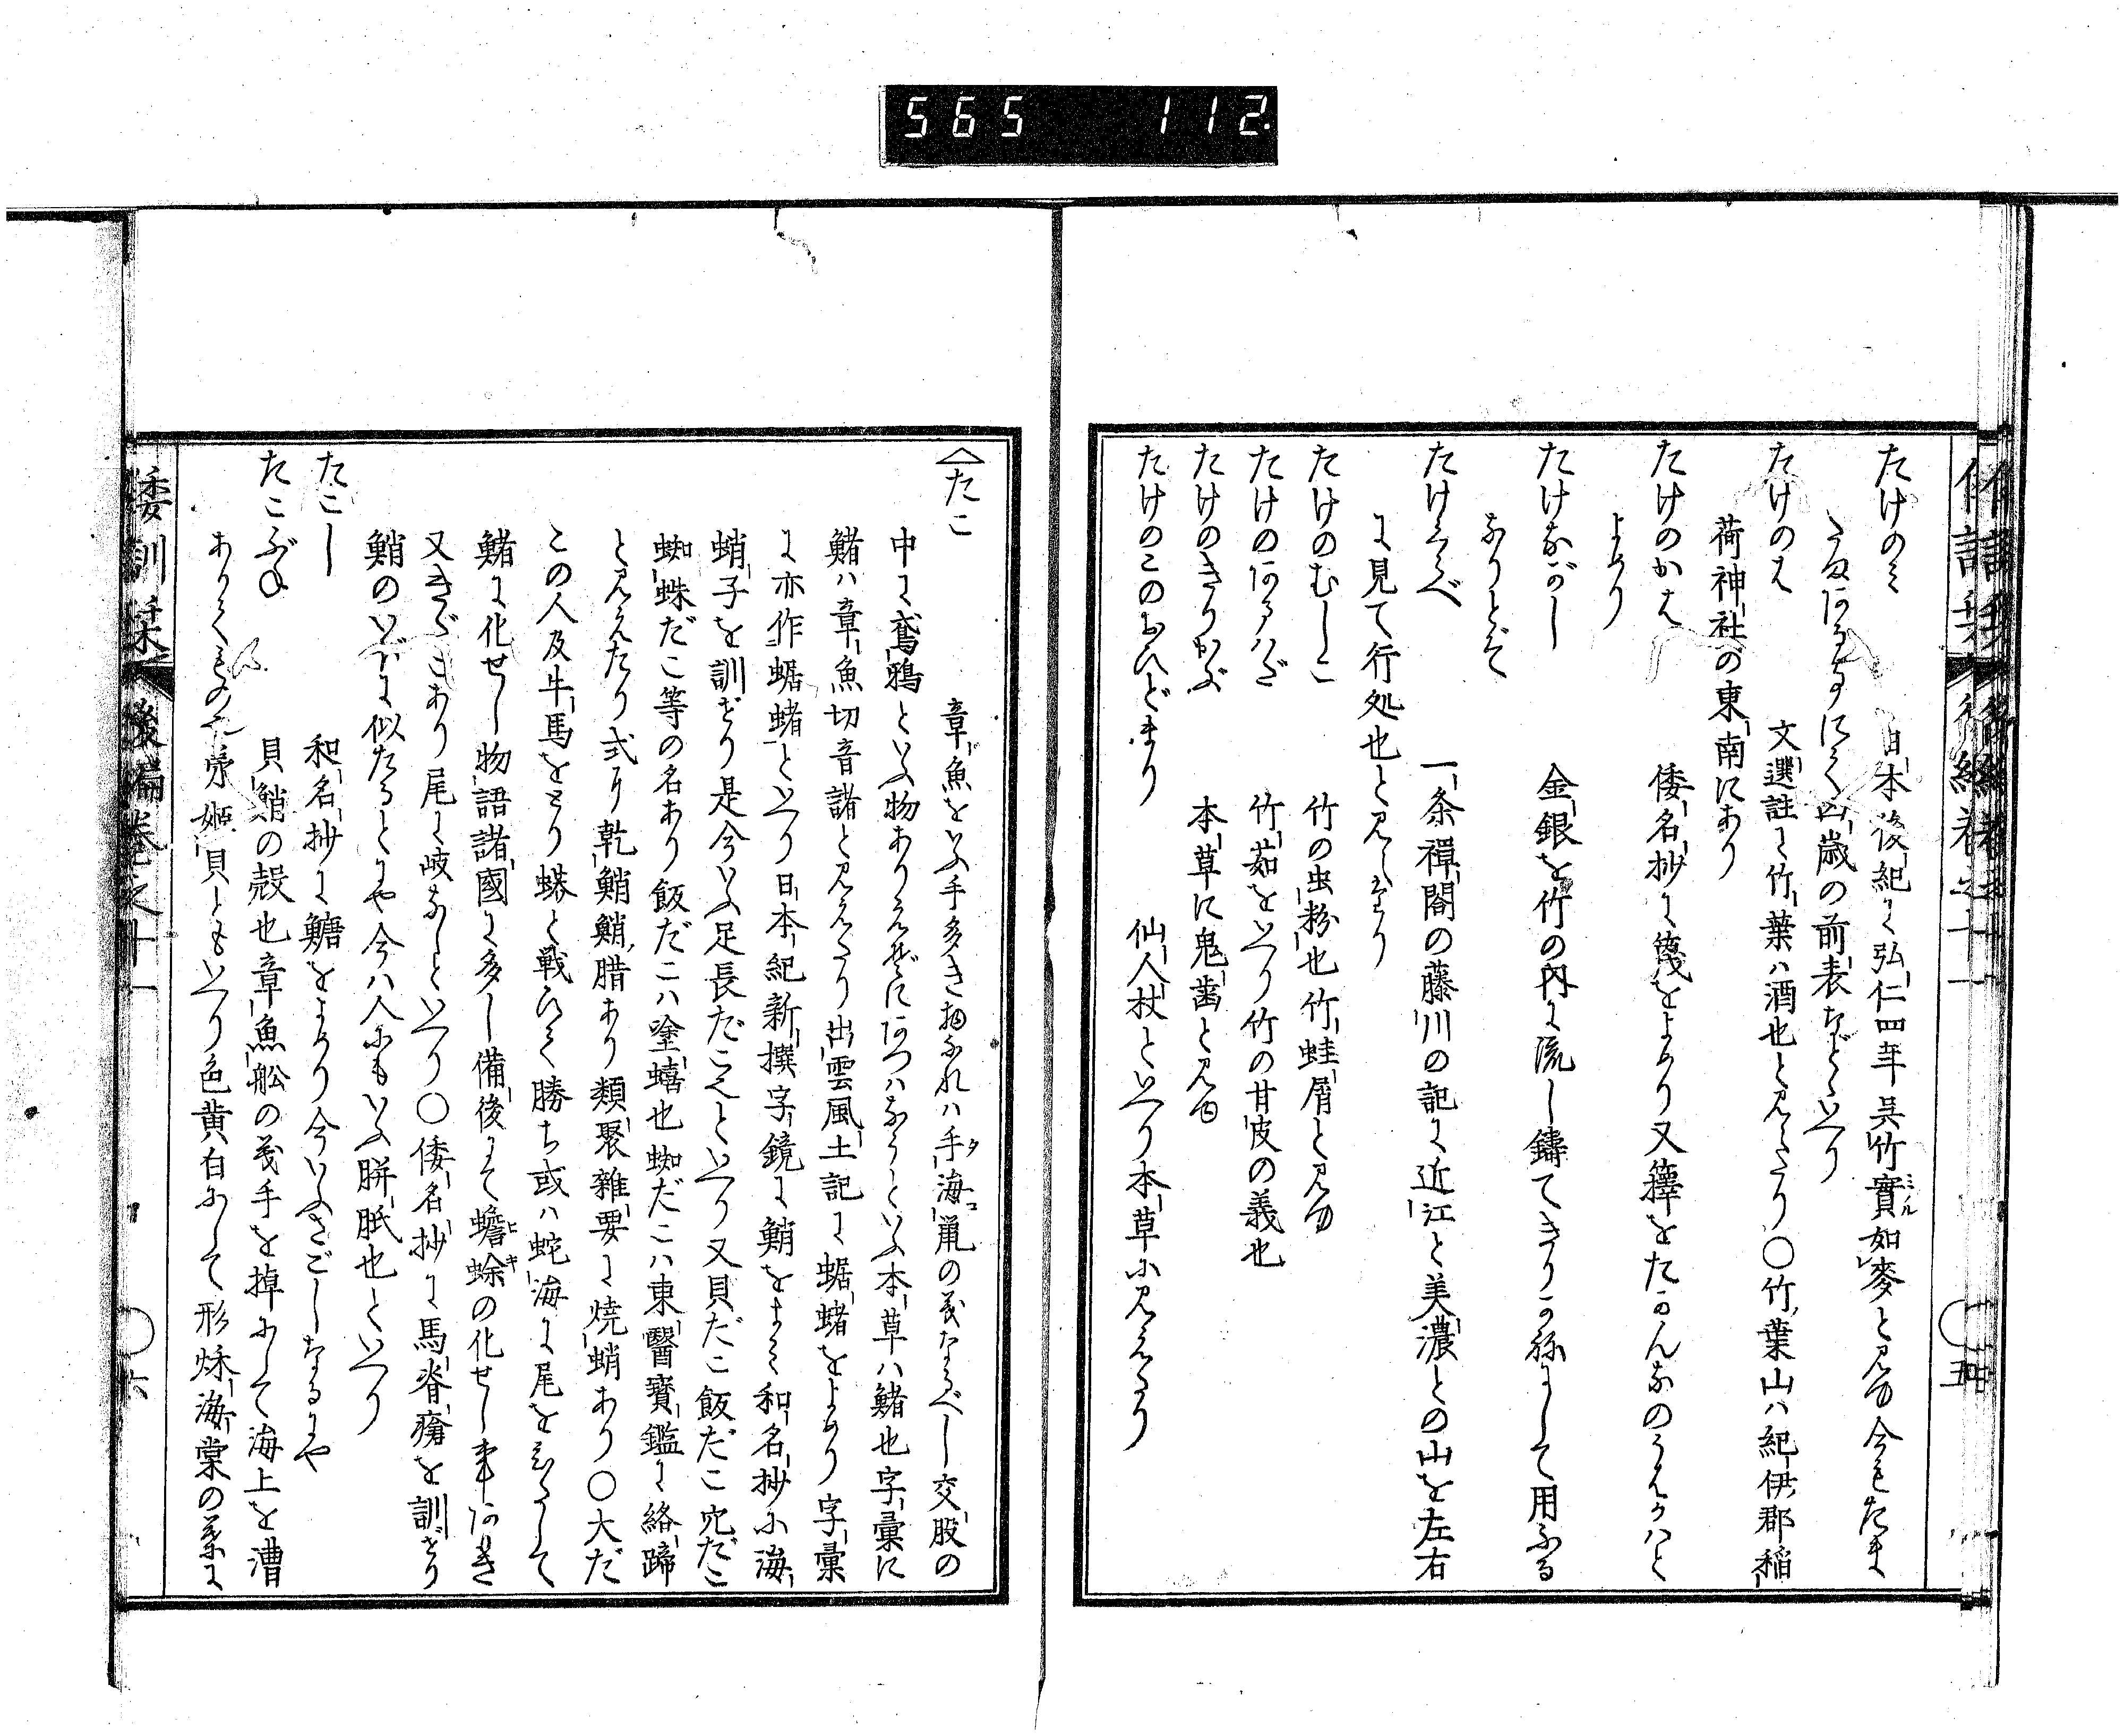 565 112.
たけのミ 日本後紀に弘仁四年呉竹實如麥と見ゆ今もたま
たまあることにて凶歳の前表などゝいへり
たけのは 文選註に竹葉ハ酒也と見えたり〇竹葉山ハ紀伊郡稲
荷神社の東南にあり
たけのかは 倭名抄に篾をよめり又籜をたかんなのうはかハと
よめり
たけながし 金銀を竹の内に流し鑄てきりかねにして用ふる
なりとぞ
たけくらべ 一条禅閤の藤川の記に近江と美濃との山を左右
に見て行処也と見えたり
たけのむしこ 竹の虫粉也竹蛙屑と見ゆ
たけのあまはだ 竹茹をいへり竹の甘皮の義也
たけのきりかぶ 本草に鬼歯と見ゆ
たけのこのおひどまり 仙人杖といへり本草に見えたり
たこ 章魚をいふ手多き物なれハ手海鼠の義なるべし交股の
中に鳶鴉といふ物ありえぜにあつハなうといふ本草ハ鱆也字彙に
鱆ハ章魚切音諸と見えたり出雲風土記に蛣蝫をよめり字彙
に亦作蛣蝫といへり日本紀新撰字鏡に鮹をよミ和名抄に海
蛸子を訓ぜり是今いふ足長だこ也といへり又貝だこ飯だこ穴だこ
蜘蛛だこ等の名あり飯だこハ塗蟢也蜘だこハ東醫寶鑑に絡蹄
と見えたり式に乾鮹鮹腊あり類聚雜要に焼蛸あり〇大だ
この人及牛馬をとり蟒と戦ひて勝ち或ハ蛇海に尾をひたして
鱆に化せし物語諸國に多し備後にて蟾蜍の化せし事あり
又きずにあり尾に岐なしといへり〇倭名抄に馬脊瘡を訓ぜり
鮹のいぼに似たるとにや今ハ人にもいふ胼胝也といへり
たこし 和名抄に鱅をよめり今いふさごしなるにや
たこぶね 貝鮹の殻也章魚舩の義手を掉にして海上を漕
ありくものや帝姫貝ともいへり色黄白にして形秋海棠の葉に
倭訓栞 後編巻之十一 〇六